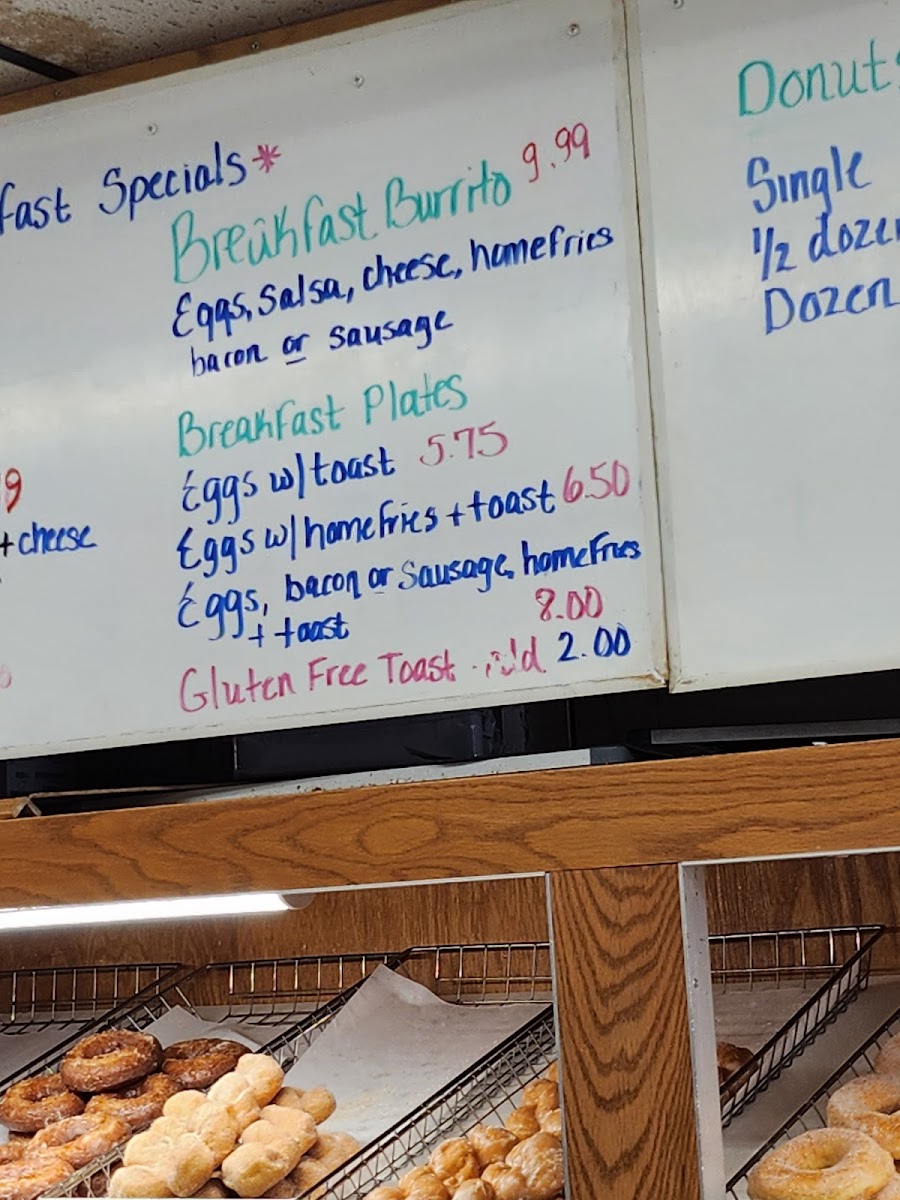 fast Specials*
Breakfast Burrito 9.99
Eggs, salsa, cheese, homefries
bacon or sausage
Breakfast Plates
Eggs w/toast 5.75
Eggs w/homefries + toast 6.50
Eggs, bacon or sausage, homefries
+ toast 8.00
Gluten Free Toast add 2.00
9
+ cheese
Donuts
Single
1/2 dozen
Dozen